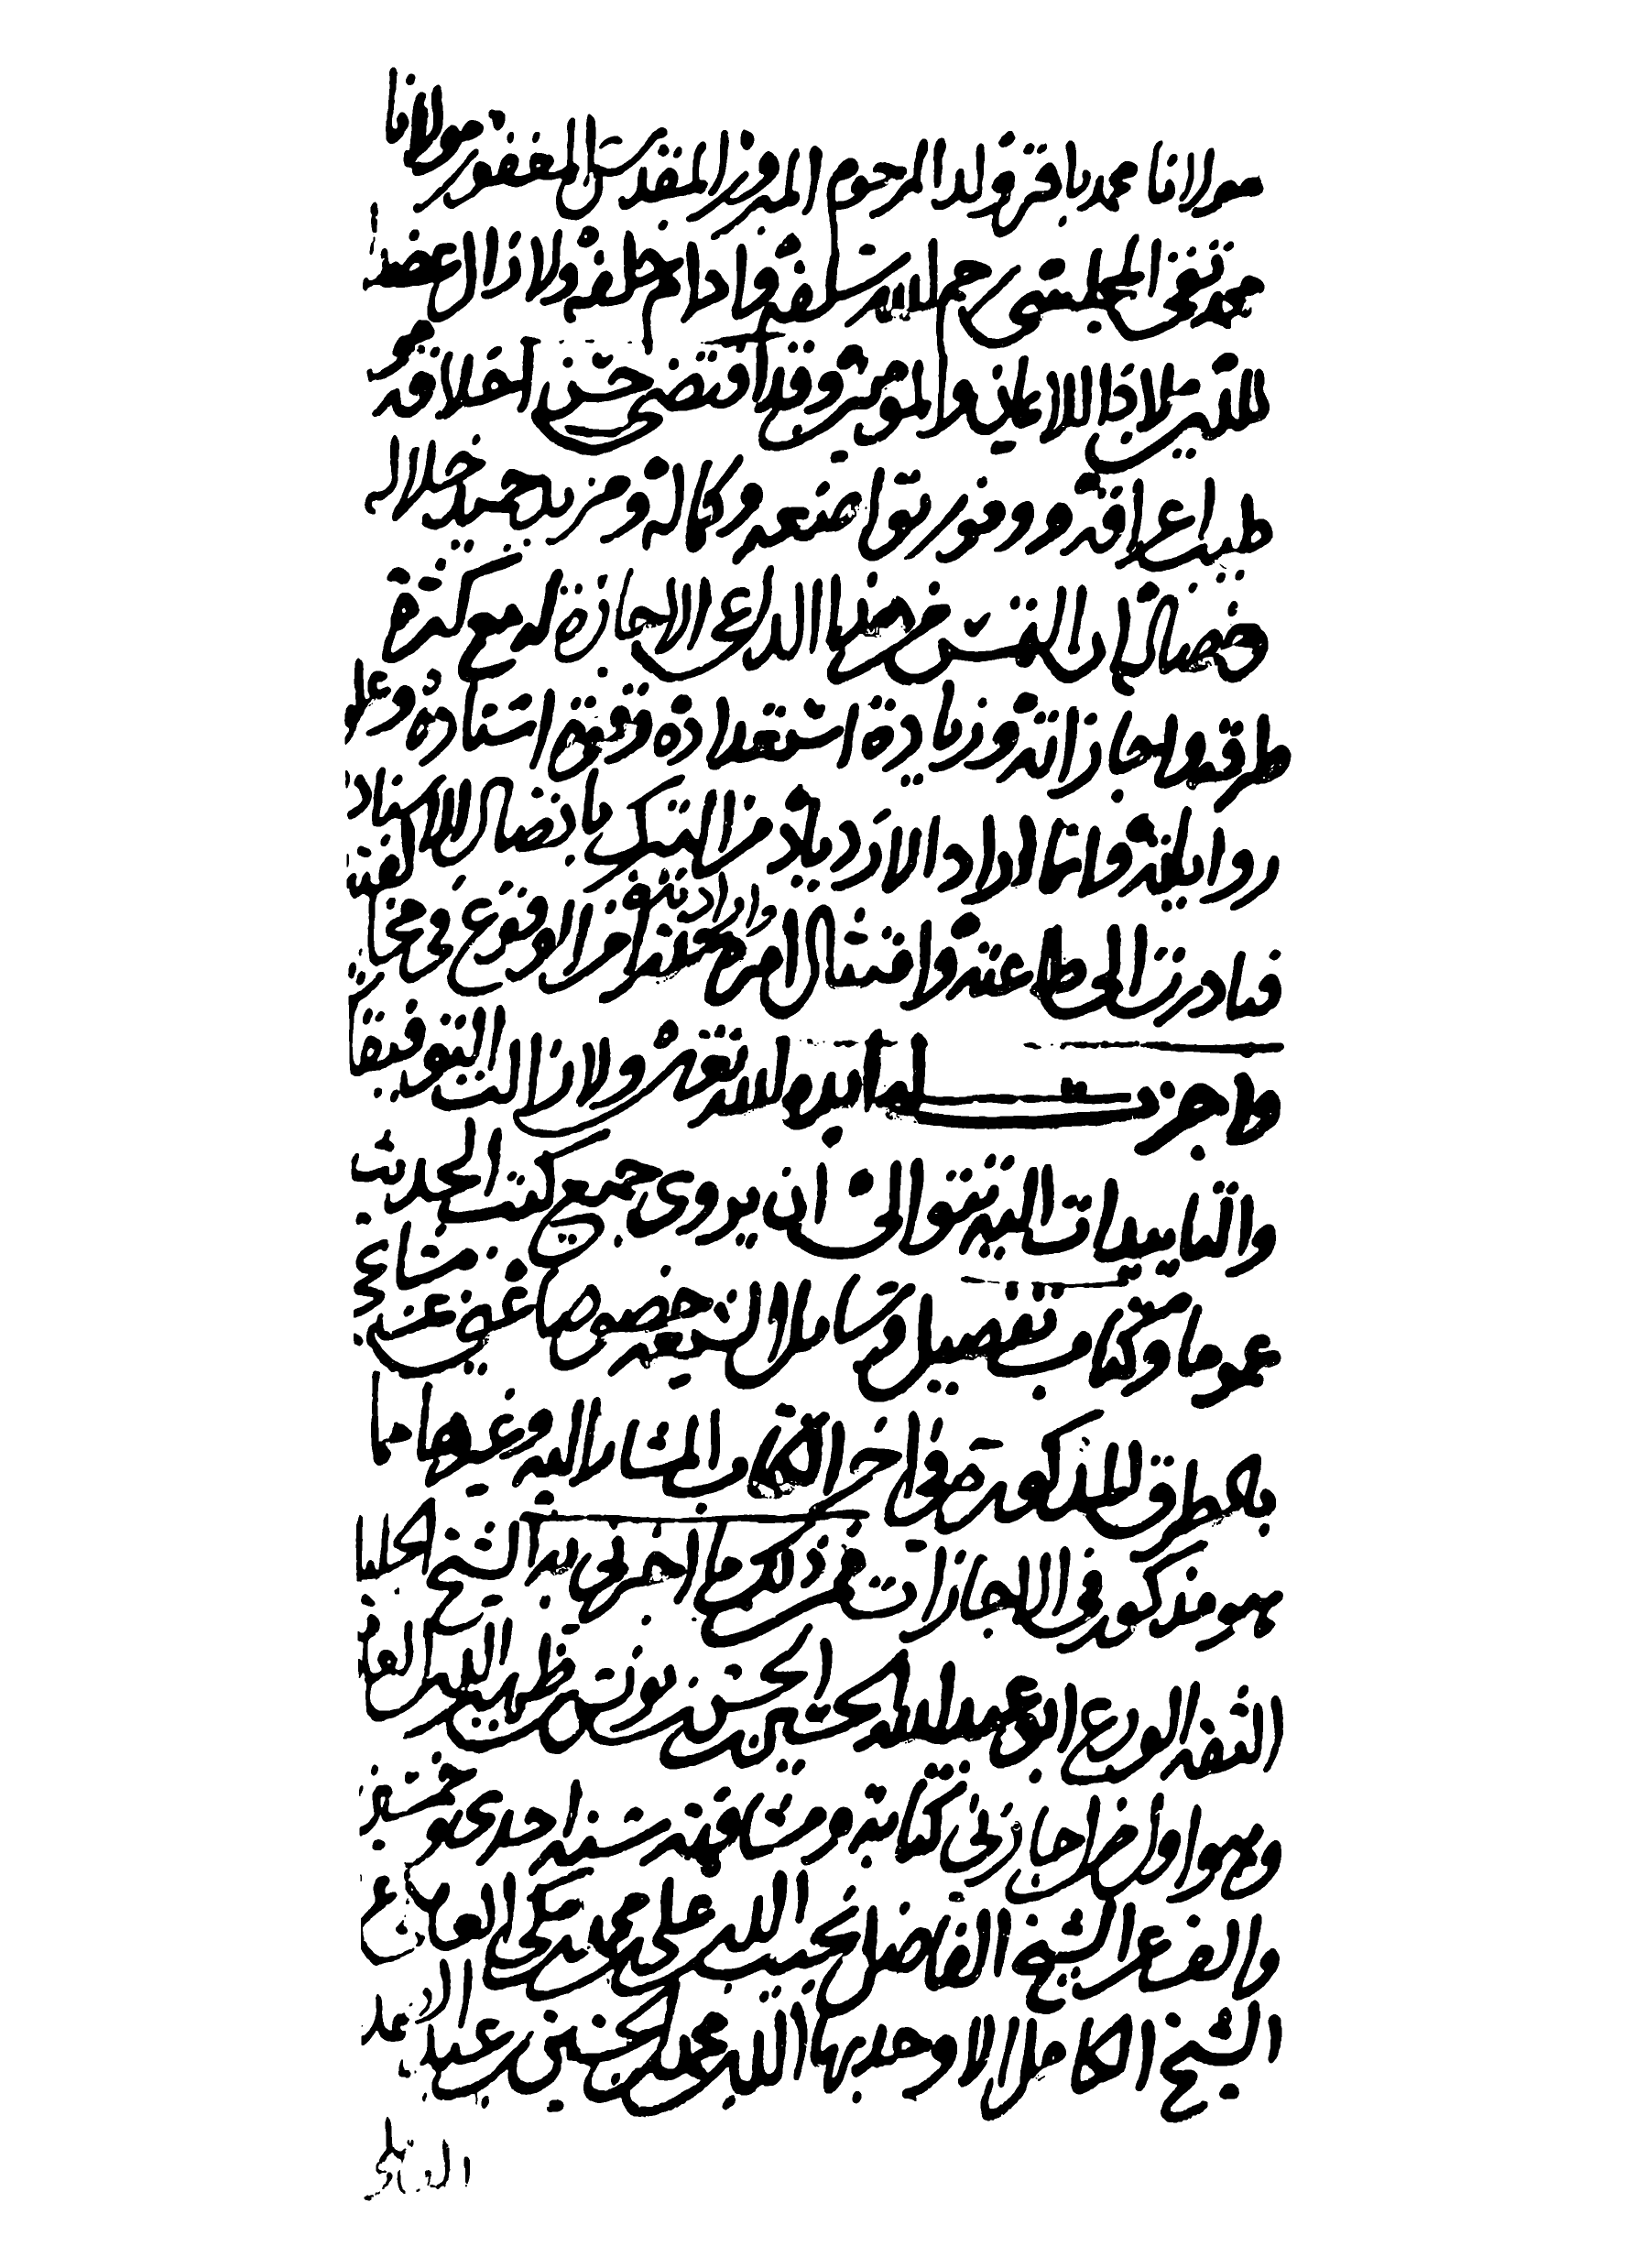 مولانا محمد باقر ولد المرحوم المبرور المقدس المغفور مولانا
محمد تقي المجلسي رحم الله سلفه وادام خلفه ولا زال عضدا
للدين وملاذا للايمان والمؤمنين وقد اقتضى حسن اخلاقه و
طيب اعراقه ووفور تواضعه وكماله ومزيد حميد خلاله
وخصاله ان التمس من هذا الداعي الاجازة له مع كثرة
طرقه واجازاته وزيادة استعداده وقوة اسناده وعلو
رواياته وانما اراد الازدياد من التبرك باتصال الاسناد
فبادرت الى طاعته وامتثال امره وارادته حذرا من الوقوع في مخالفته
واجزت له ايده الله تعالى ولا زالت التوفيقات
والتاييدات اليه تتوالى ان يروي جميع كتب الحديث
عموما وكتاب تفصيل وسائل الشيعة خصوصا عني عن مشايخي
بالطرق المذكورة في اخر الكتاب المشار اليه وغيرها مما
هو مذكور في الاجازات فمن ذلك ما اخبرني به الشيخ الجليل
الثقة الورع ابو عبد الله الحسين بن الحسن بن يونس بن ظهير الدين العاملي
وهو اول من اجازني كتابة ومشافهة سنة احدى وخمسين
والف عن الشيخ الفاضل نجيب الدين علي بن محمد بن مكي العاملي عن
الشيخ الكامل الاوحد بهاء الدين محمد بن الحسين بن عبد الصمد